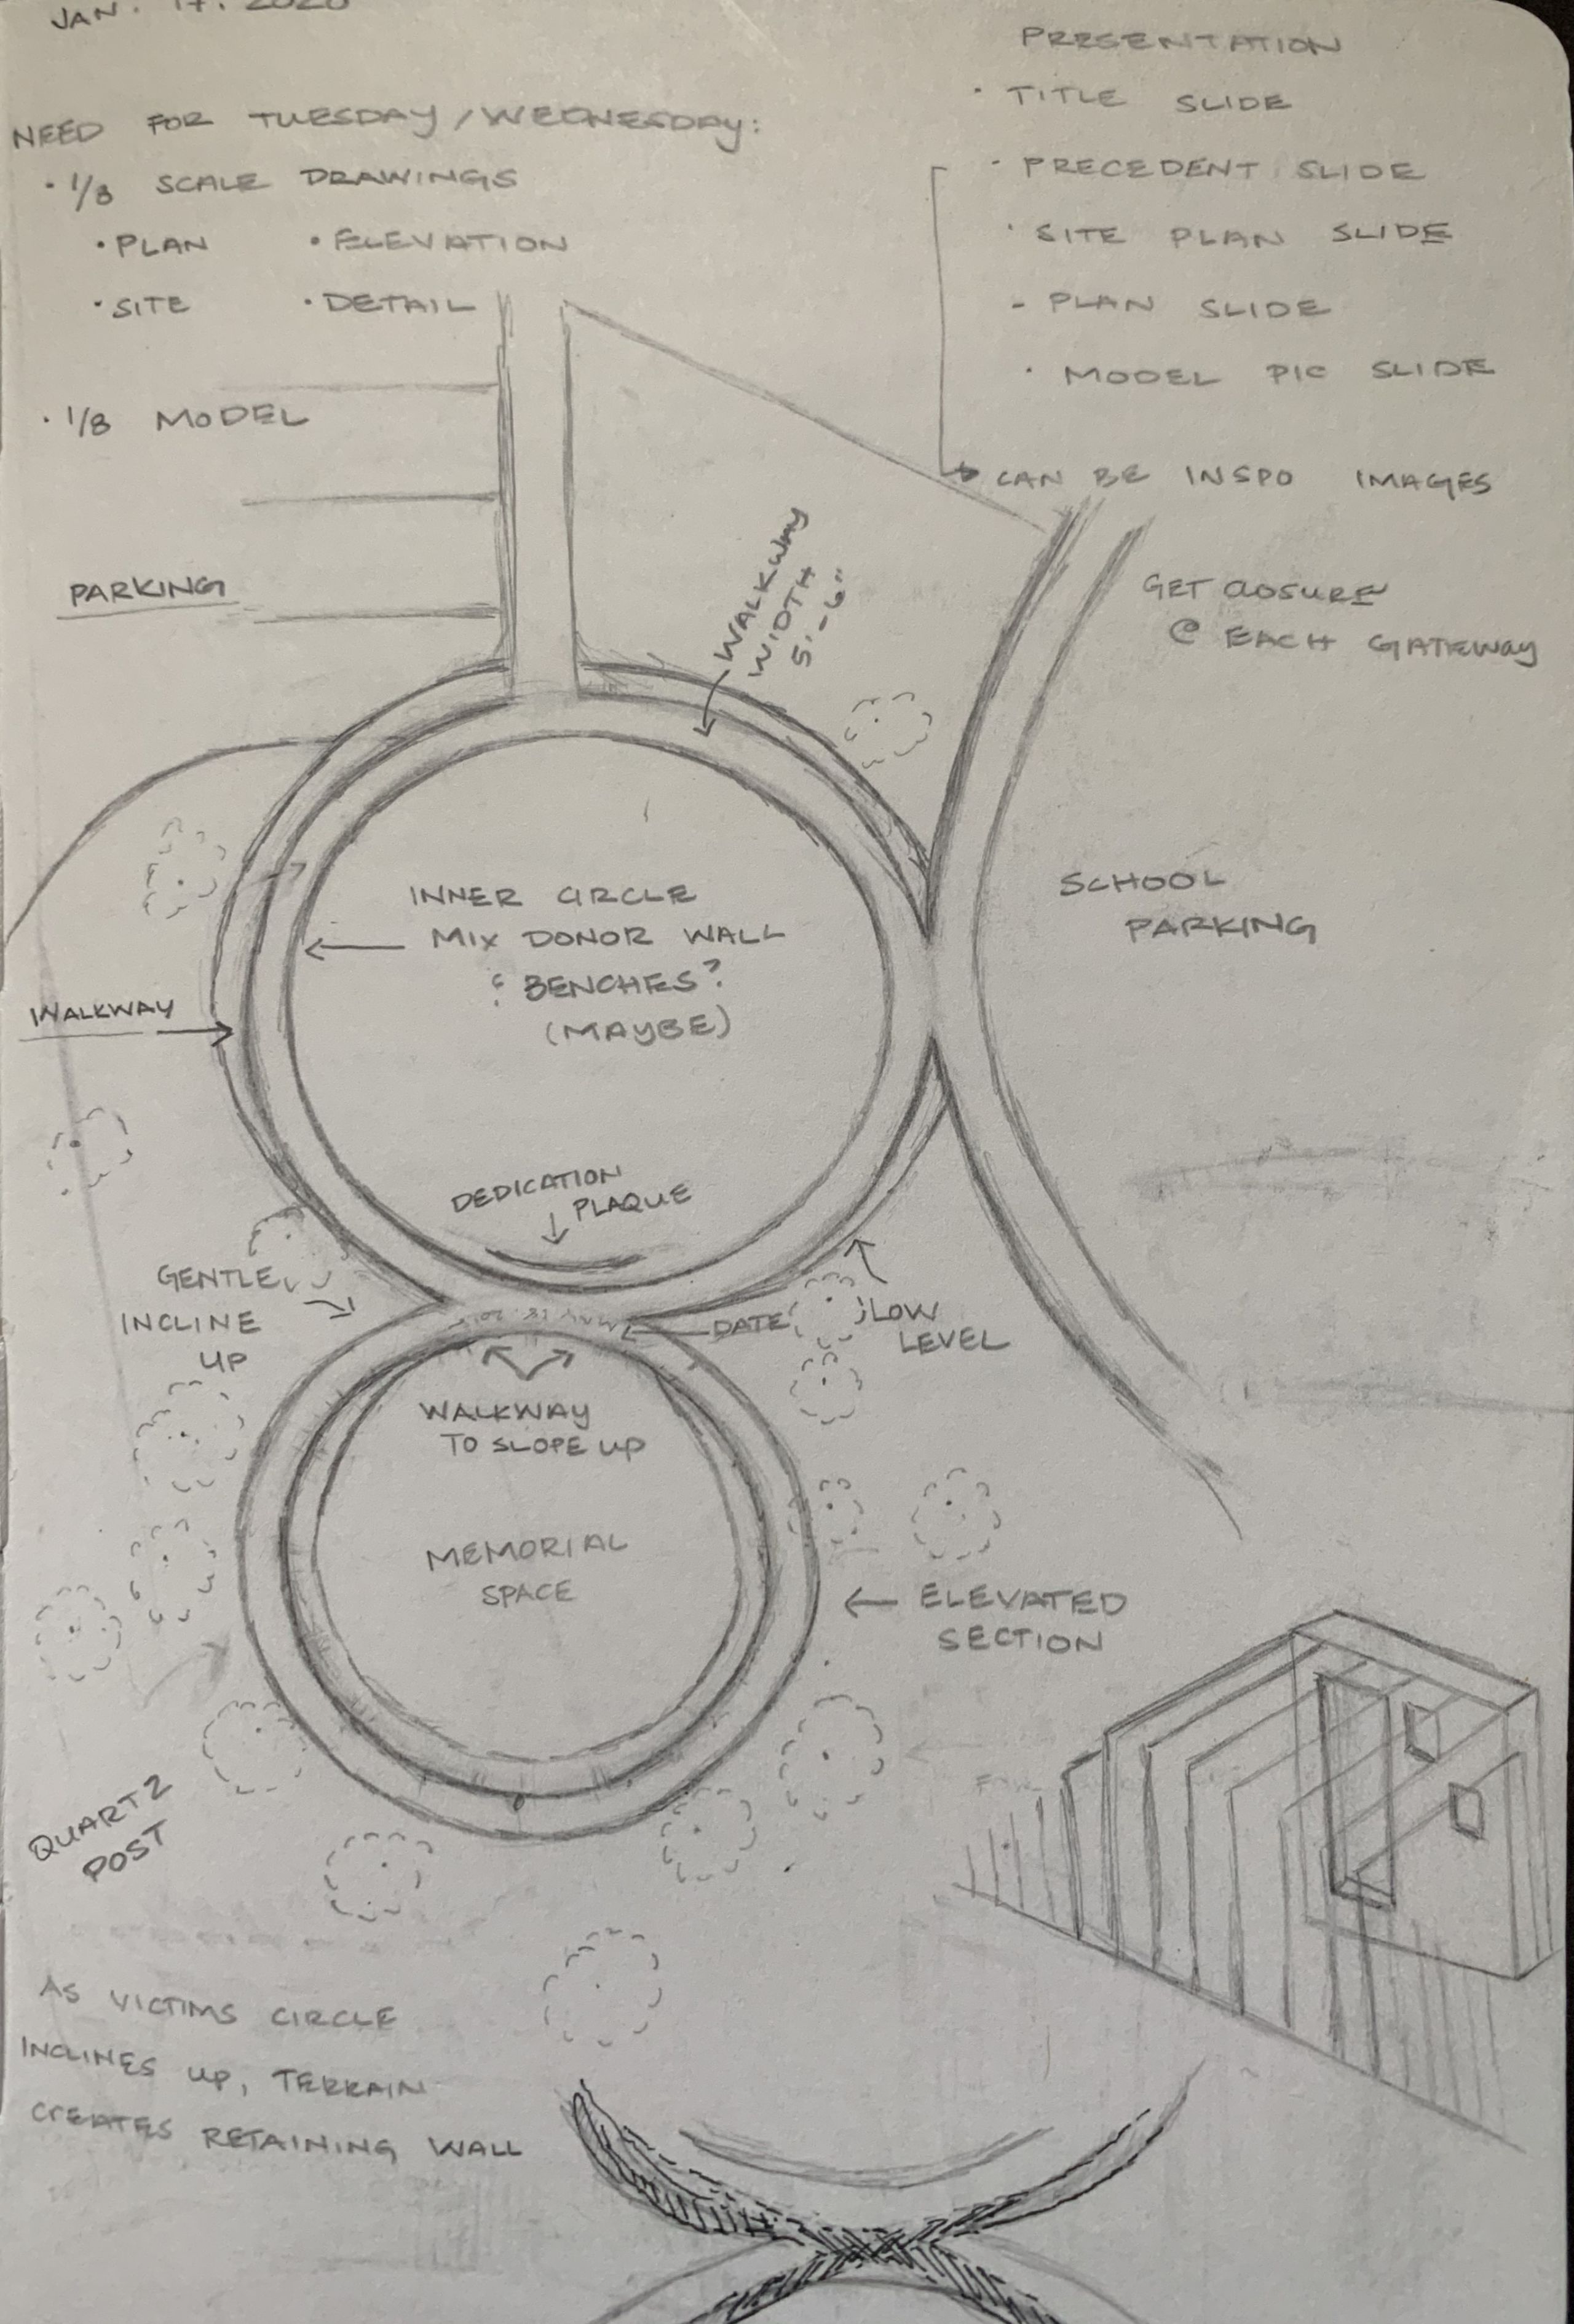 JAN. 17. 2020
NEED FOR TUESDAY/WEDNESDAY:
· 1/8 SCALE DRAWINGS
· PLAN · ELEVATION
· SITE · DETAIL
· 1/8 MODEL
PRESENTATION
· TITLE SLIDE
- PRECEDENT SLIDE
· SITE PLAN SLIDE
- PLAN SLIDE
· MODEL PIC SLIDE
CAN BE INSPO IMAGES
GET CLOSURE
@ EACH GATEWAY
PARKING
WALKWAY
WIDTH
5'-6"
SCHOOL
PARKING
INNER CIRCLE
MIX DONOR WALL
& BENCHES?
(MAYBE)
WALKWAY
DEDICATION
PLAQUE
GENTLE
INCLINE
UP
DATE
LOW
LEVEL
WALKWAY
TO SLOPE UP
MEMORIAL
SPACE
ELEVATED
SECTION
QUARTZ
POST
AS VICTIMS CIRCLE
INCLINES UP, TERRAIN
CREATES RETAINING WALL